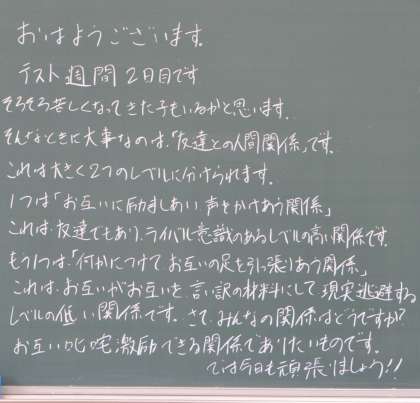 おはようございます。
テスト週間2日目です
そろそろ苦しくなってきた子もいるかと思います。
そんなときに大事なのは、「友達との人間関係」です。
これは大きく2つのレベルに分けられます。
1つは「お互いに励ましあい声をかけあう関係」
これは、友達でもあり、ライバル意識のあるレベルの高い関係です。
もう1つは、「何かにつけてお互いの足を引っ張りあう関係」
これは、お互いがお互いを、言い訳の材料にして現実逃避する
レベルの低い関係です。さて、みんなの関係はどうですか?
お互い叱咤激励できる関係でありたいものです。
では今日も頑張りましょう!!